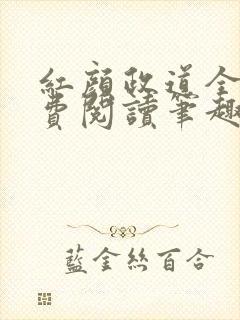 紅顏政道全
費閱讀筆趣
藍金絲百合